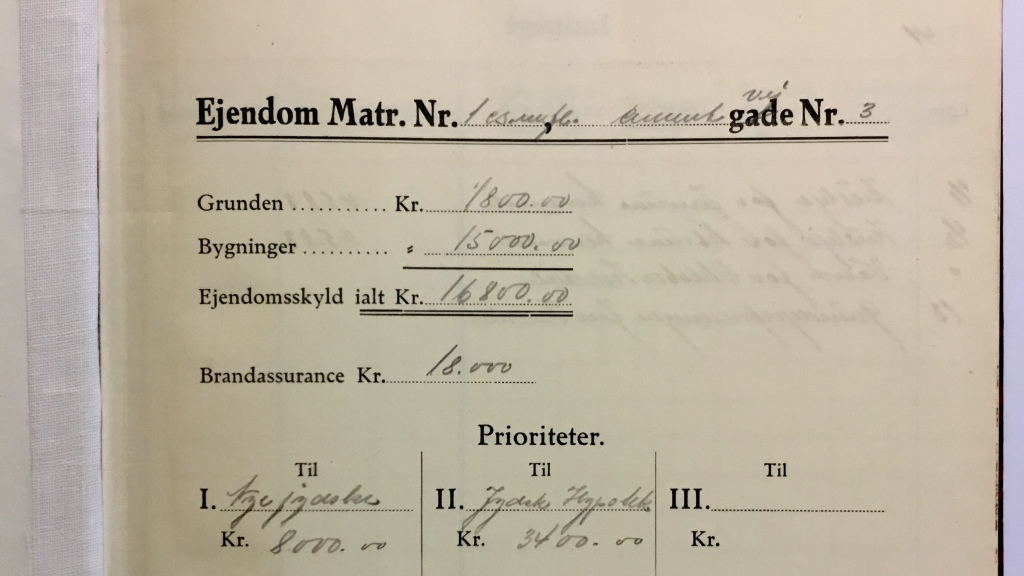 Ejendom Matr. Nr. 1 , vej gade Nr. 3
Grunden .......... Kr. 1800.00
Bygninger ......... " 15000.00
Ejendomsskyld ialt Kr. 16800.00
Brandassurance Kr. 18.000
Prioriteter.
Til Til Til
I. Nye jydske II. Jydsk Hypotek III.
Kr. 8000.00 Kr. 3400.00 Kr.